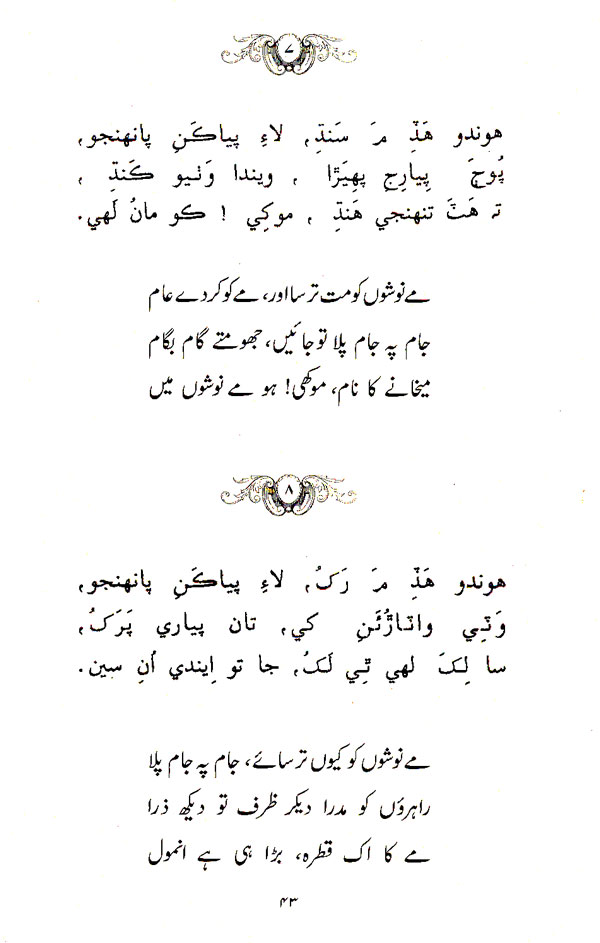 ۷
هوندو هَڏِ مَ سَنڍِ, لاءِ پياڪَنِ پانهنجو,
پُوڄَ پِيارِجِ پهِيَڙا , ويندا وَٺيو ڪَنڌِ ,
تہ هَٽَ تنهنجي هَنڌِ , موکِي ! ڪو مانُ لَهي.
مے نوشوں کو مت ترسا اور، مے کو کردے عام
جام پہ جام پلا تو جائیں، جھومتے گام بگام
میخانے کا نام، موکھی! ہو مے نوشوں میں
۸
هوندو هَڏِ مَ رَکُ, لاءِ پياڪَنِ پانهنجو,
وَٽِي واٽاڙُئَنِ کي, تان پياري پَرَکُ,
سا لِکَ لهي ٿِي لَکُ, جا تو اِيندي اُنِ سين.
مے نوشوں کو کیوں ترسائے، جام پہ جام پلا
راہروؤں کو مدرا دیکر ظرف تو دیکھ ذرا
مے کا اک قطرہ، بڑا ہی ہے انمول
۴۳